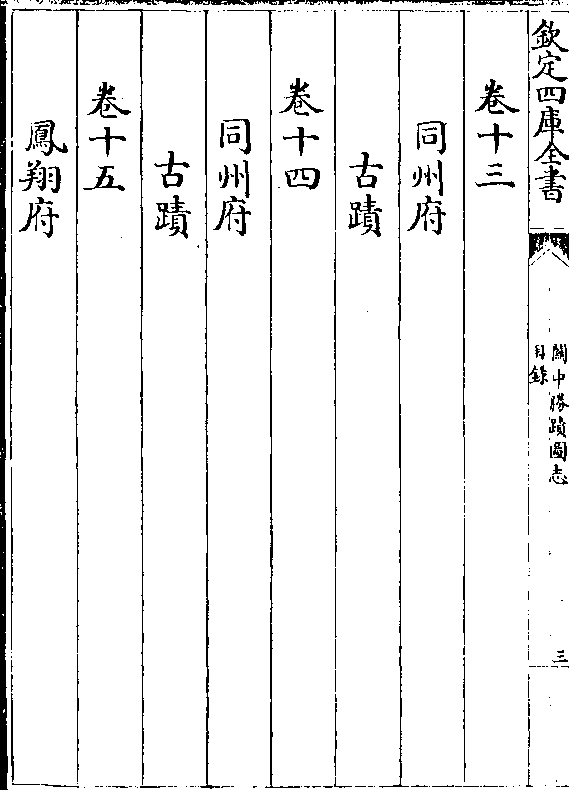 欽定四庫全書
關中勝蹟圖志
目錄
三
卷十三
同州府
古蹟
卷十四
同州府
古蹟
卷十五
鳳翔府